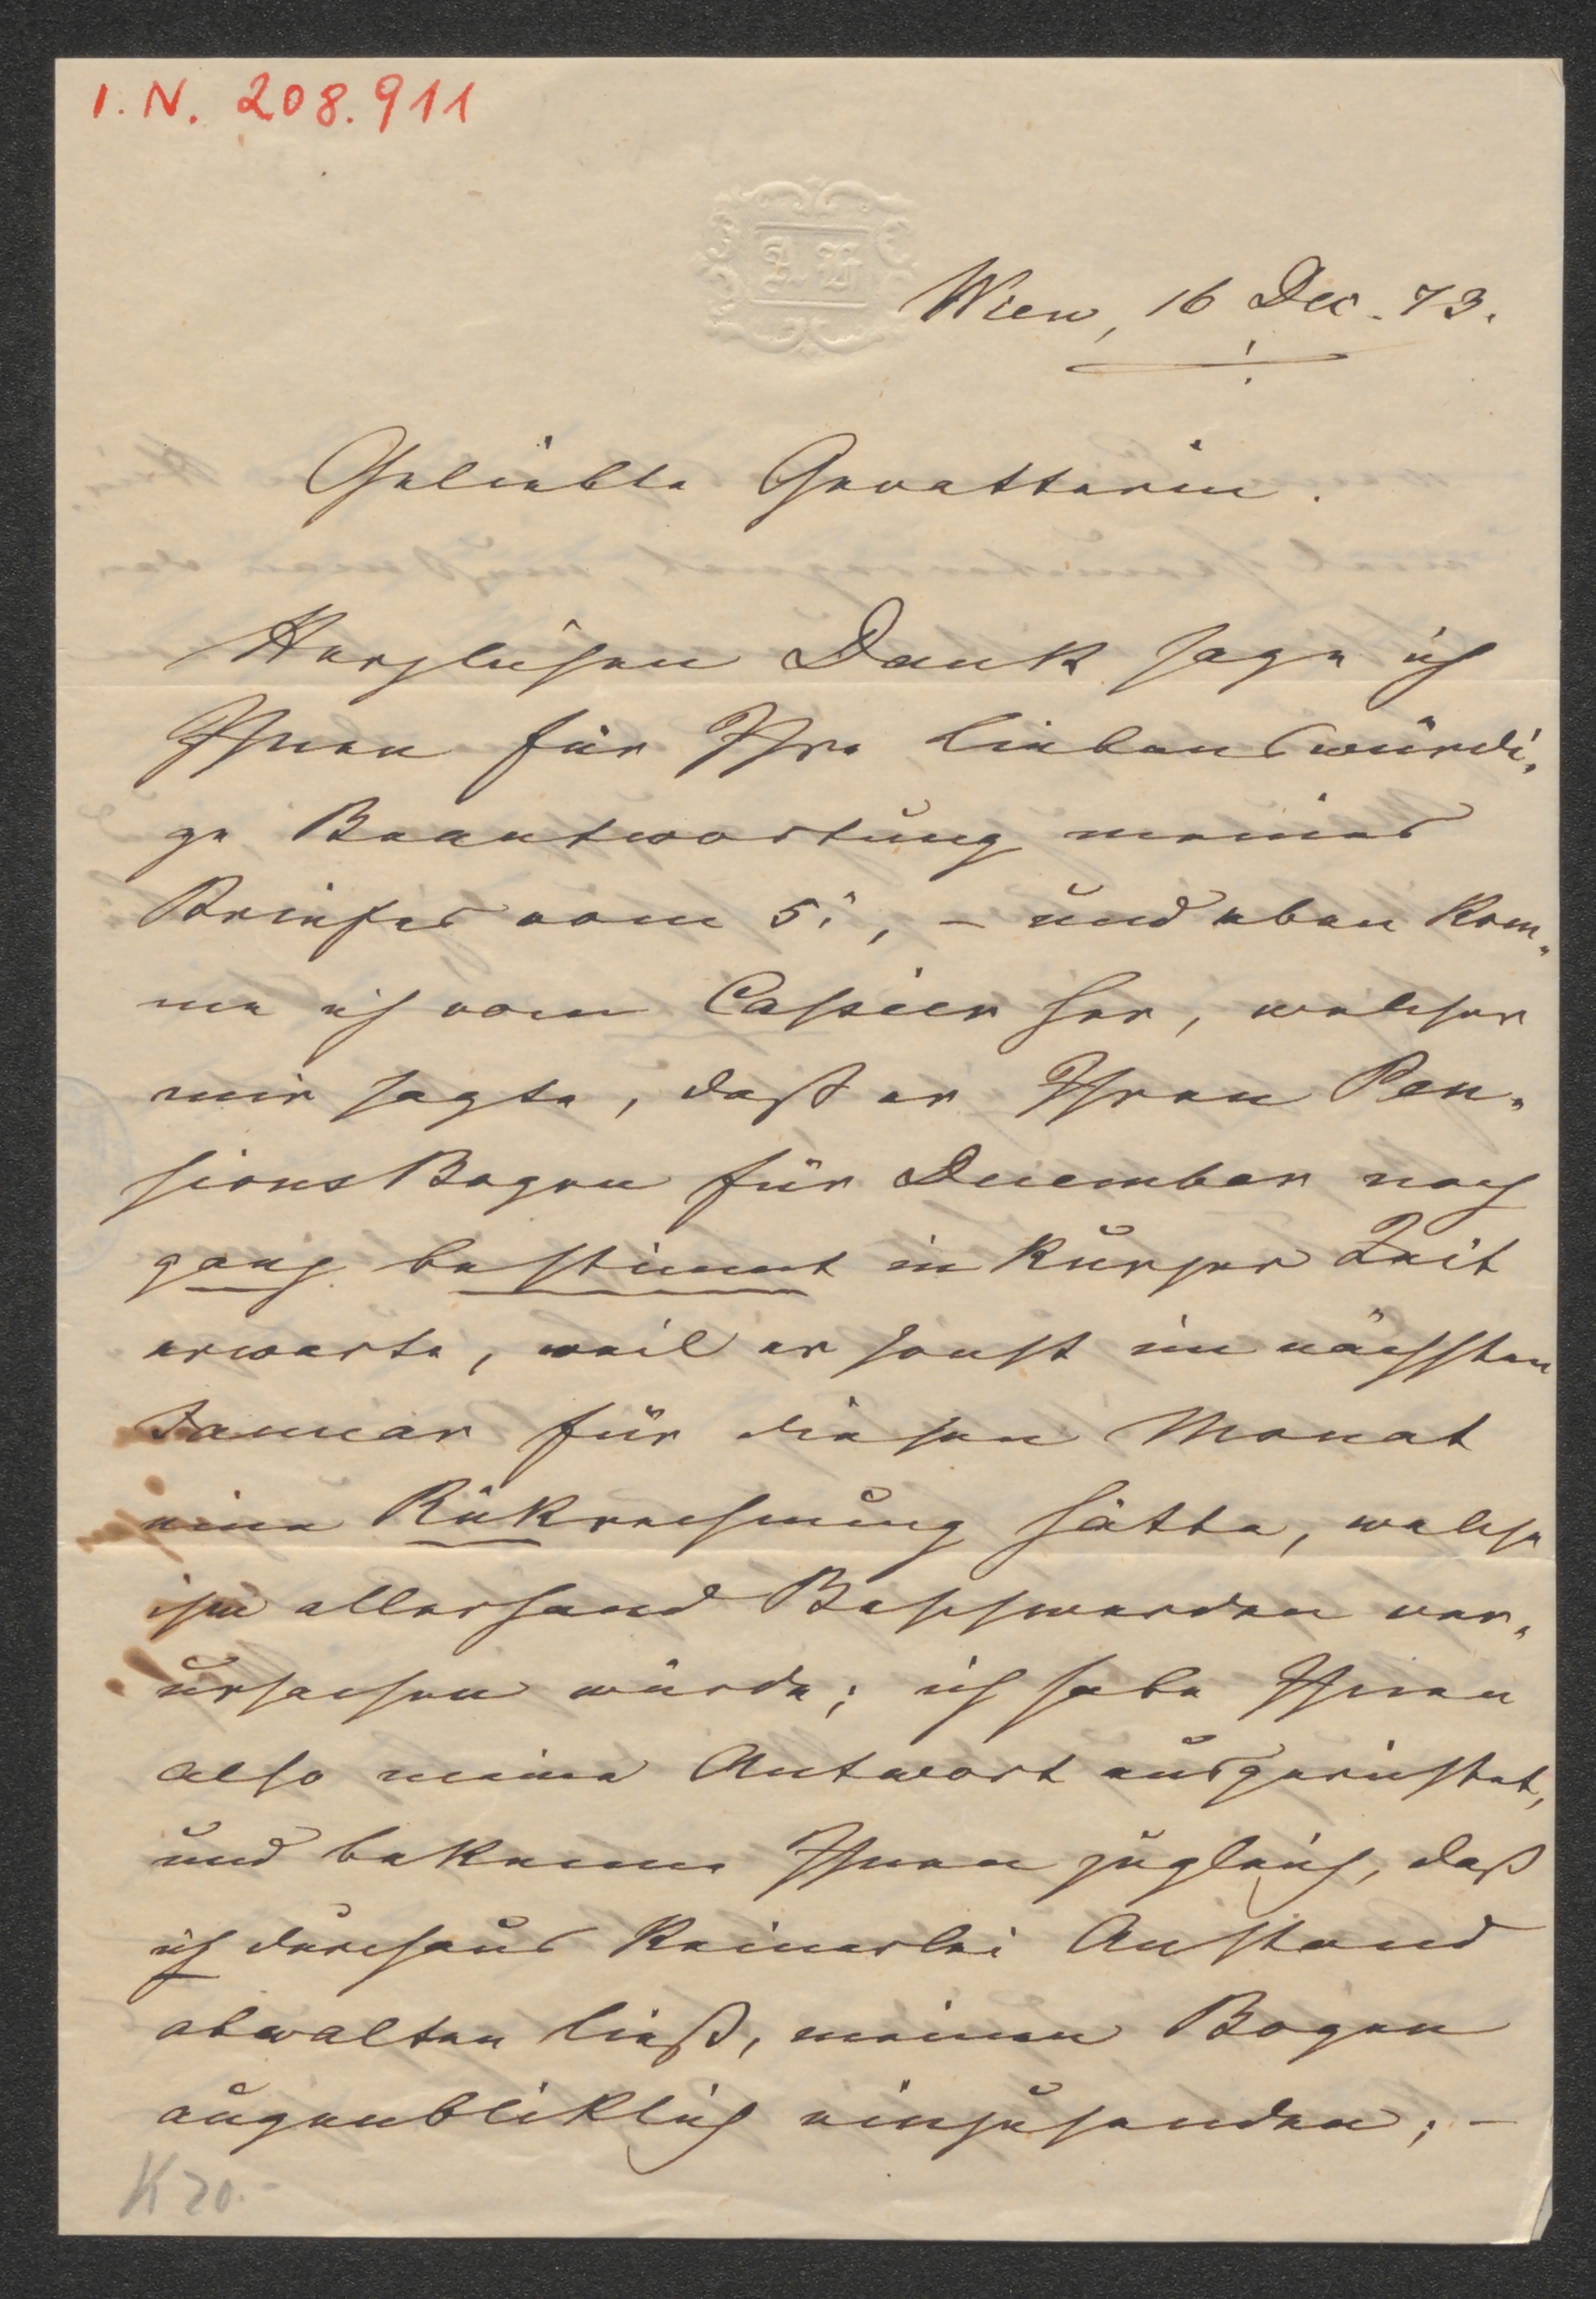 I. N. 208.911
Wien, 16 Dec. 73.
Geliebte Gevatterin.
Herzlichen Dank sage ich
Ihnen für Ihre liebenswürdi„
ge Beantwortung meines
Briefes vom 5t, – und eben kom„
me ich vom Cassier her, welcher
mir sagte, daß er Ihren Pen„
sions Bogen für December noch
ganz bestimmt in kurzer Zeit
erwarte, weil er sonst im nächsten
Januar für diesen Monat
eine Rükrechnung hätte, welche
ihm allerhand Beschwerden ver„
ursachen würde; ich habe Ihnen
also meine Antwort ausgerichtet,
und bekenne Ihnen zugleich, daß
ich durchaus keinerlei Anstand
obwalten ließ, meinen Bogen
augenbliklich einzusenden; –
K 20.-